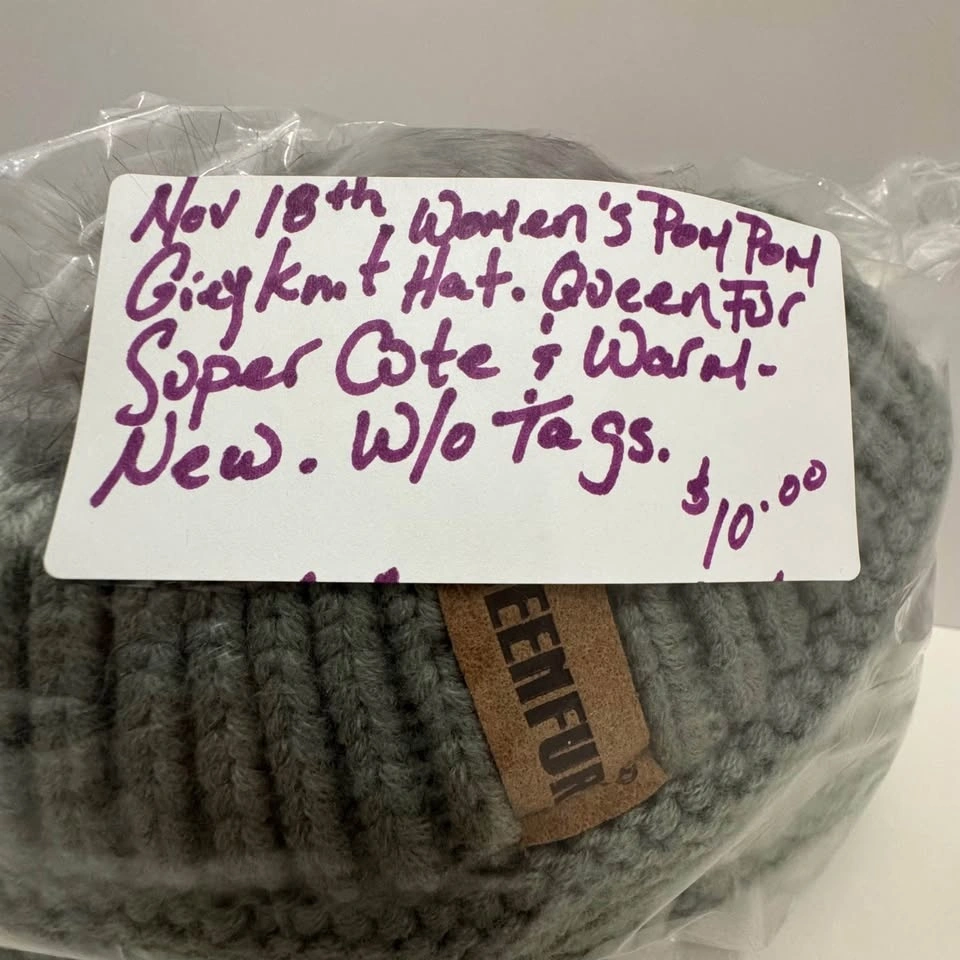 Nov 18th Women's Pom Pom
Grey Knit Hat. Queen Fur
Super Cute & Warm-
New. W/o Tags.
$10.00
EENFUR